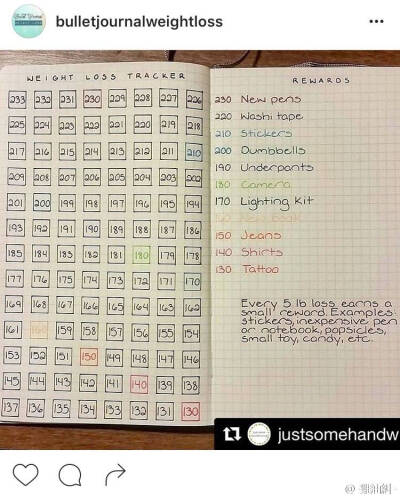 bulletjournalweightloss
WEIGHT LOSS TRACKER
233 232 231 230 229 228 227 226
225 224 223 222 221 220 219 218
217 216 215 214 213 212 211 210
209 208 207 206 205 204 203 202
201 200 199 198 197 196 195 194
193 192 191 190 189 188 187 186
185 184 183 182 181 180 179 178
177 176 175 174 173 172 171 170
169 168 167 166 165 164 163 162
161 160 159 158 157 156 155 154
153 152 151 150 149 148 147 146
145 144 143 142 141 140 139 138
137 136 135 134 133 132 131 130
REWARDS
230 New pens
220 Washi tape
210 Stickers
200 Dumbbells
190 Underpants
180 Camera
170 Lighting Kit
150 Jeans
140 Shirts
130 Tattoo
Every 5 lb loss earns a
small reward. Examples:
stickers, inexpensive pen
or notebook, popsicles,
small toy, candy, etc.
justsomehandw